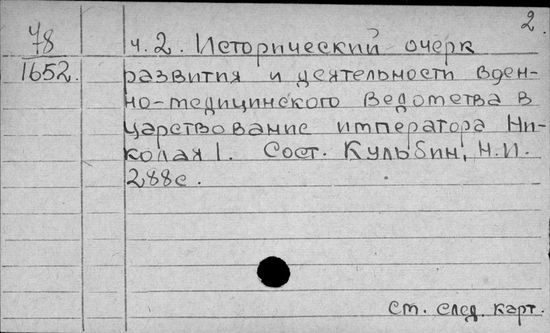 2.
78
1652.
ч. 2. Исторический очерк
развития и деятельности воен-
но-медицинского ведомства в
царствование императора Ни-
колая I. Сост. Кульбин, Н.И.
288с.
См. след. карт.